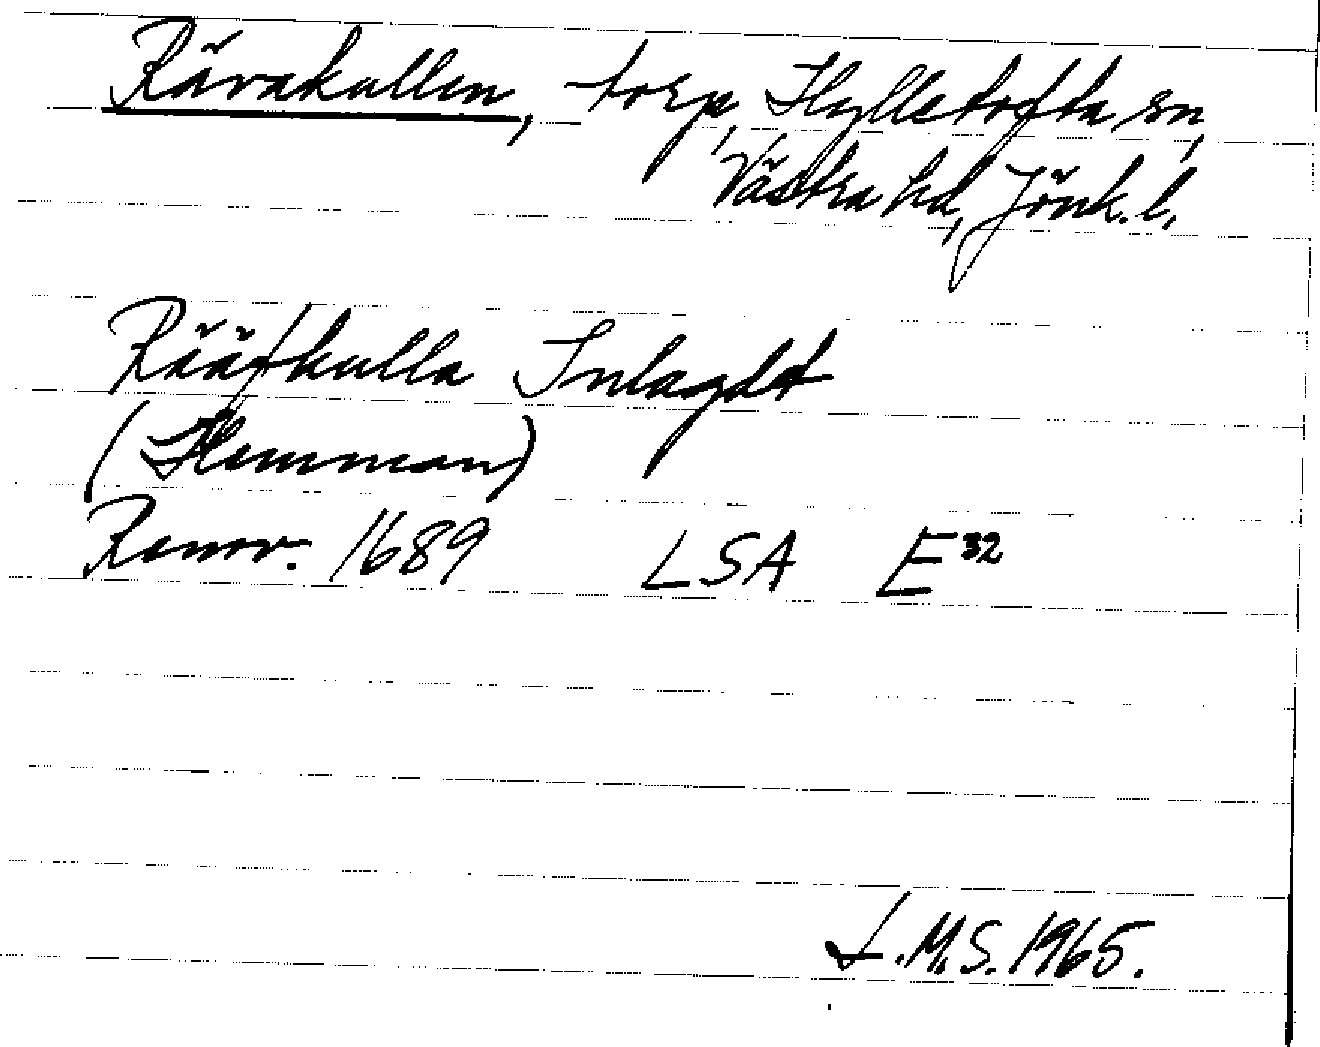 Rävakullen, torp, Hyllstofta sn,
Västra hd, Jönk. l.
Rääfkulla Inlagdt
(Hemman)
Renov. 1689 LSA E 32
L.M.S. 1965.